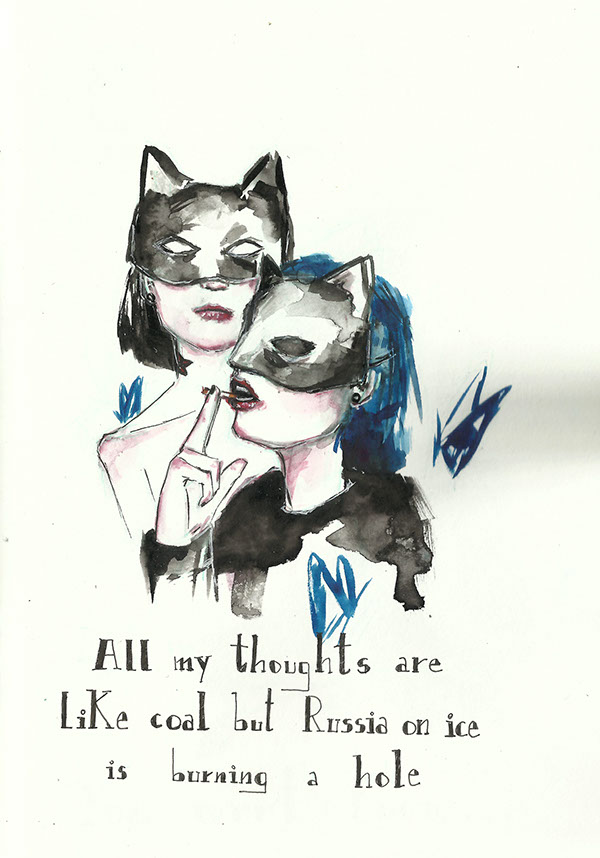 All my thoughts are
LiKe coal but Russia on ice
is burning a hole